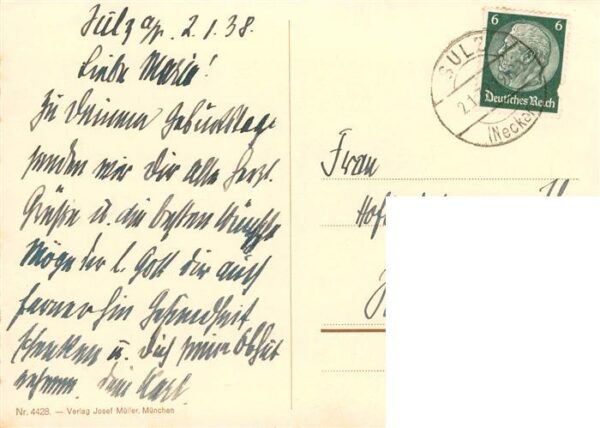 Sulz a/N. 2.1.38.
Liebe Maria!
Zu Deinem Geburtstage
senden wir Dir alle herzl.
Grüße u. die besten Wünsche
Möge der l. Gott Dir auch
fernerhin Gesundheit
schenken u. Dich seine Obhut
nehmen. Dein Karl.
Nr. 4428. — Verlag Josef Müller, München
6 6
Deutsches Reich
SULZ
2.1.
(Neckar)
Frau